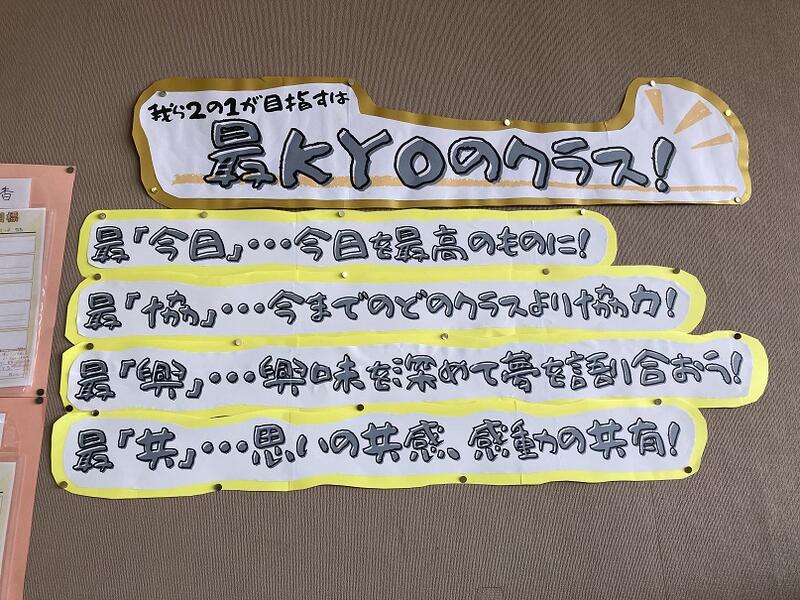 我ら2の1が目指すは
最KYOのクラス!
最「今日」…今日を最高のものに!
最「協」…今までのどのクラスより協力!
最「興」…興味を深めて夢を語り合おう!
最「共」…思いの共感、感動の共有!
香
目標